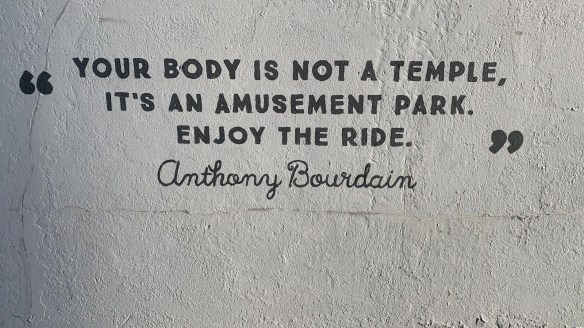 “ YOUR BODY IS NOT A TEMPLE,
IT'S AN AMUSEMENT PARK.
ENJOY THE RIDE. ”
Anthony Bourdain